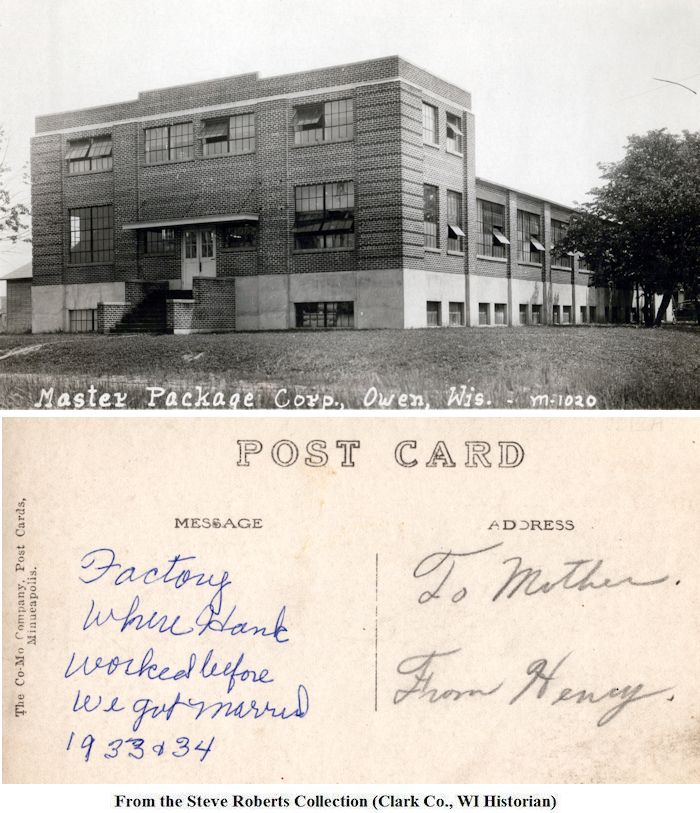 Master Package Corp., Owen, Wis. - M-1020
POST CARD
MESSAGE
ADDRESS
The Co-Mo Company, Post Cards,
Minneapolis.
Factory
Where Hank
worked before
We got married
1933 & 34
To Mother.
From Henry.
From the Steve Roberts Collection (Clark Co., WI Historian)